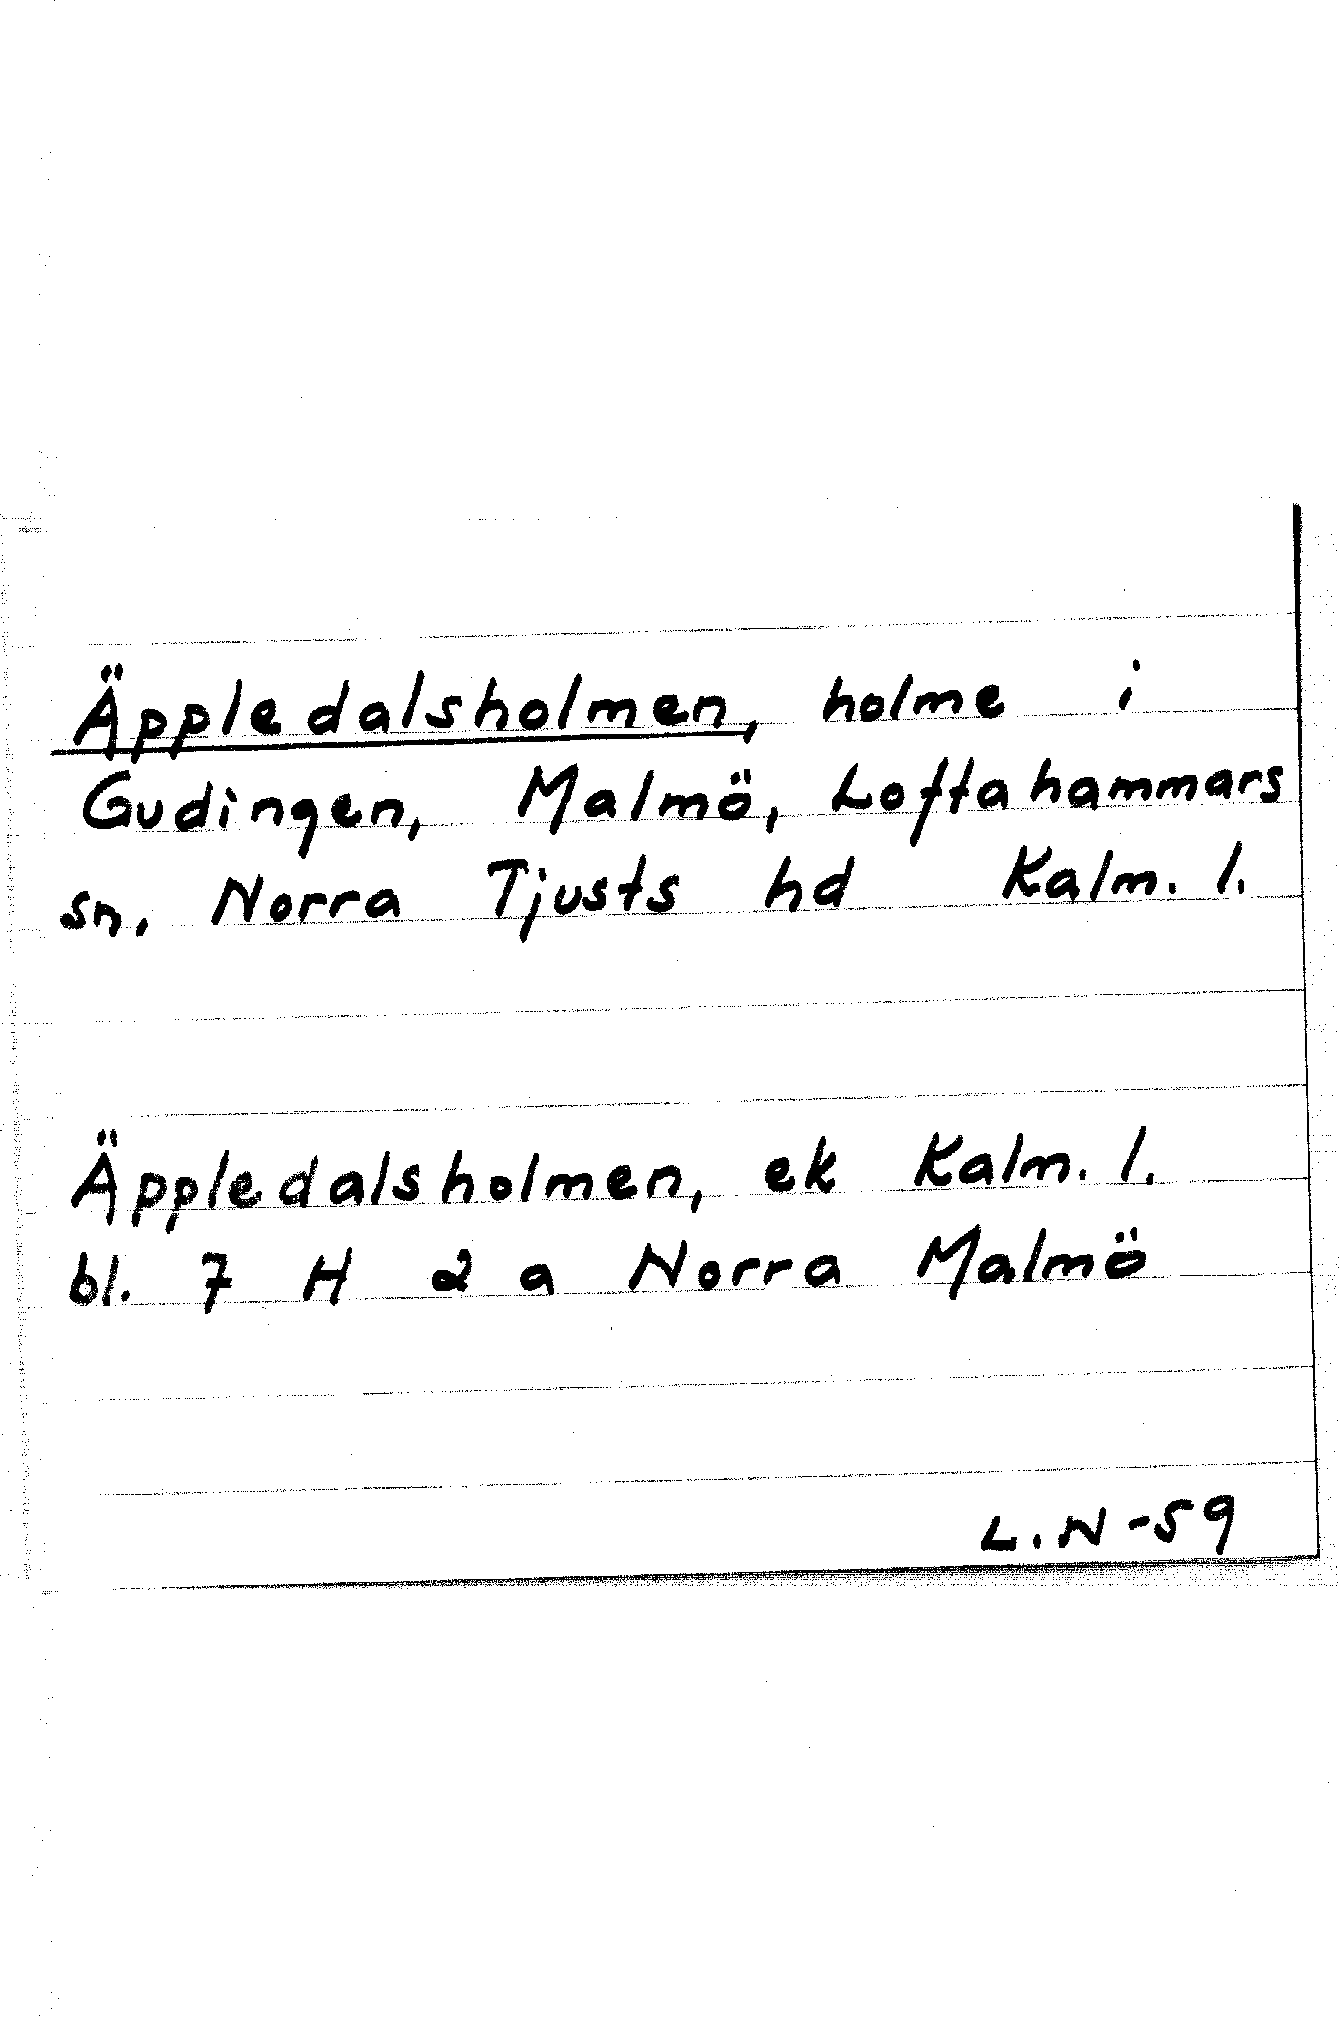 Äppledalsholmen, holme i
Gudingen, Malmö, Loftahammars
sn. Norra Tjusts hd Kalm. l.
Äppledalsholmen, ek Kalm. l.
bl. 7 H 2 a Norra Malmö
L.N-59